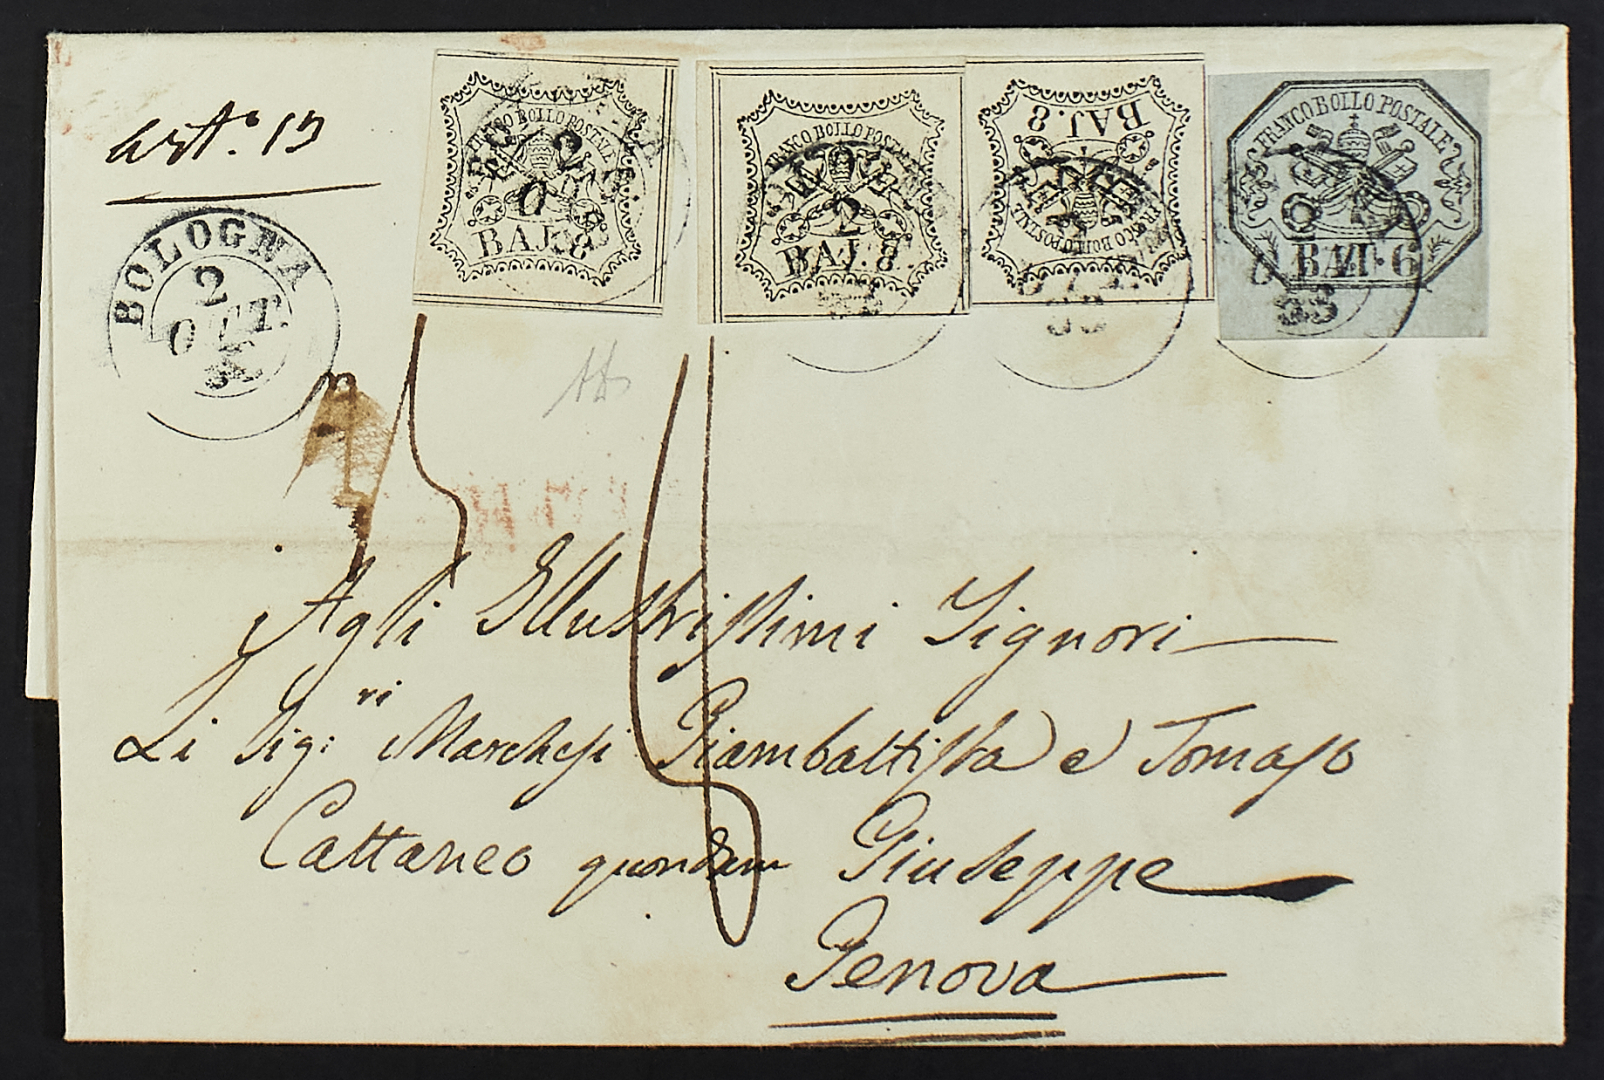 artº. 13
BOLOGNA
2
OTT.
FRANCO BOLLO POSTALE
BAJ. 8
2
FRANCO BOLLO POSTALE
BAJ. 8
2
FRANCO BOLLO POSTALE
BAJ. 8
53
FRANCO BOLLO POSTALE
BAJ. 6
53
Agli Illustrissimi Signori
Li Sig:ri Marchesi Giambattista e Tomaso
Cattaneo quondam Giuseppe
Genova